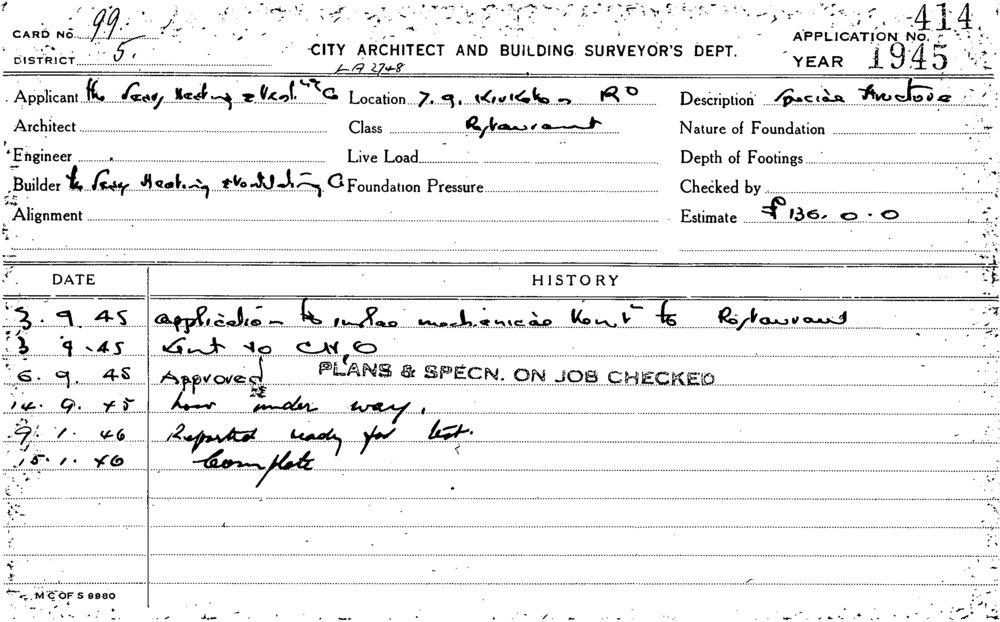 CARD No. 99.
414
APPLICATION No.
DISTRICT 5.
CITY ARCHITECT AND BUILDING SURVEYOR'S DEPT.
YEAR 1945
LA 2748
Applicant the Heating & Vent. Co Location 7.9. RD Description Special Structure
Architect Class Restaurant Nature of Foundation
Engineer Live Load Depth of Footings
Builder the Heating & Ventilating Co Foundation Pressure Checked by
Alignment Estimate £136.0.0
DATE HISTORY
3.9.45 application to mechanical Vent to Restaurant
3 9.45 Sent to
6.9.45 Approved PLANS & SPECN. ON JOB CHECKED
14.9.45 under way.
9.1.46 Reported ready for test.
15.1.46 Complete
M C OF S 9980